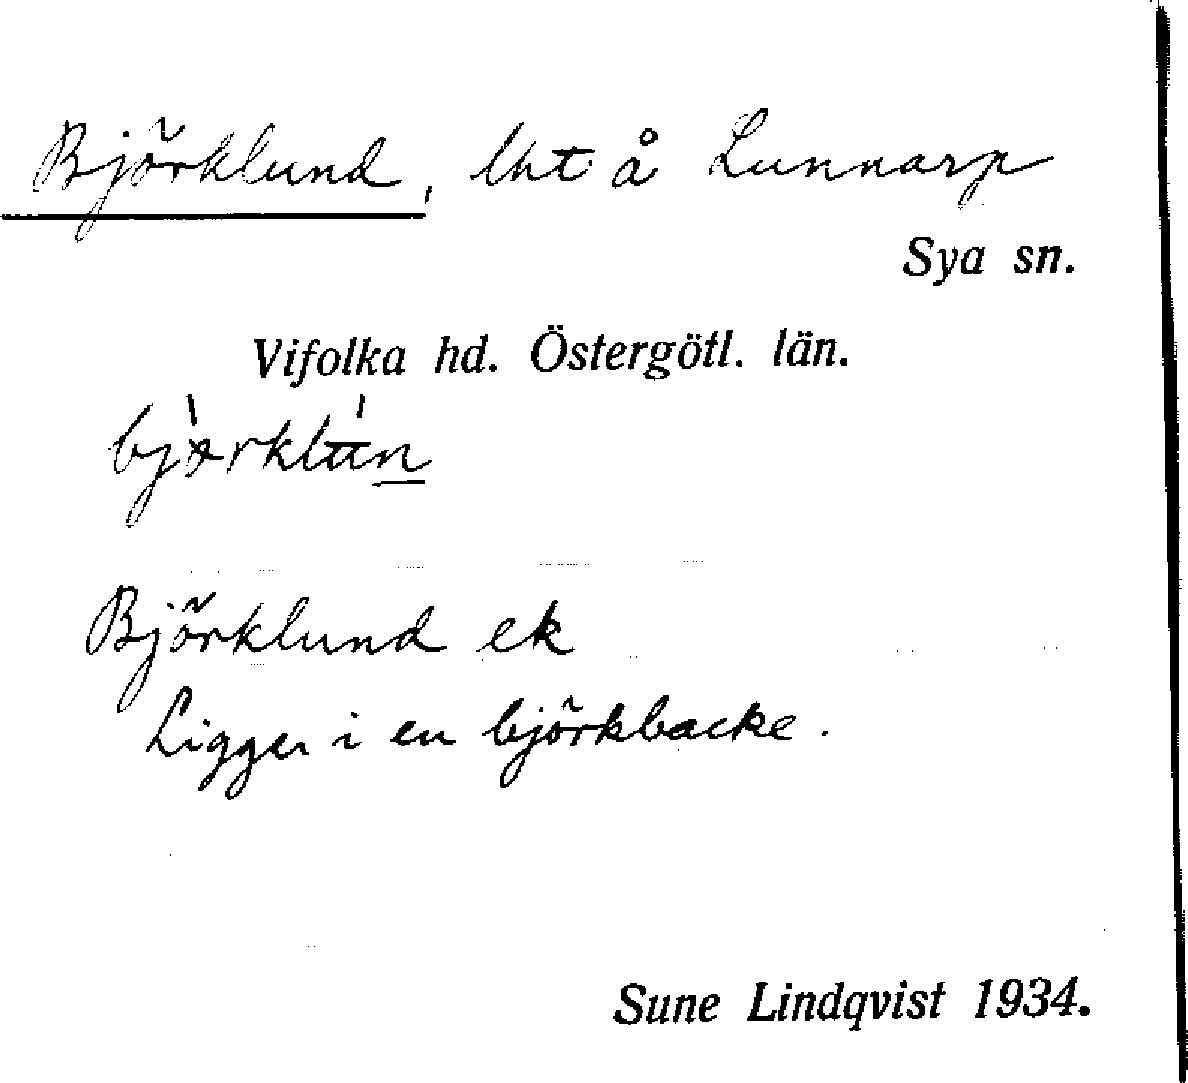 Björklund, lht å Lunnarp
Sya sn.
Vifolka hd. Östergötl. län.
Björklund ek
Ligger i en björkbacke.
Sune Lindqvist 1934.